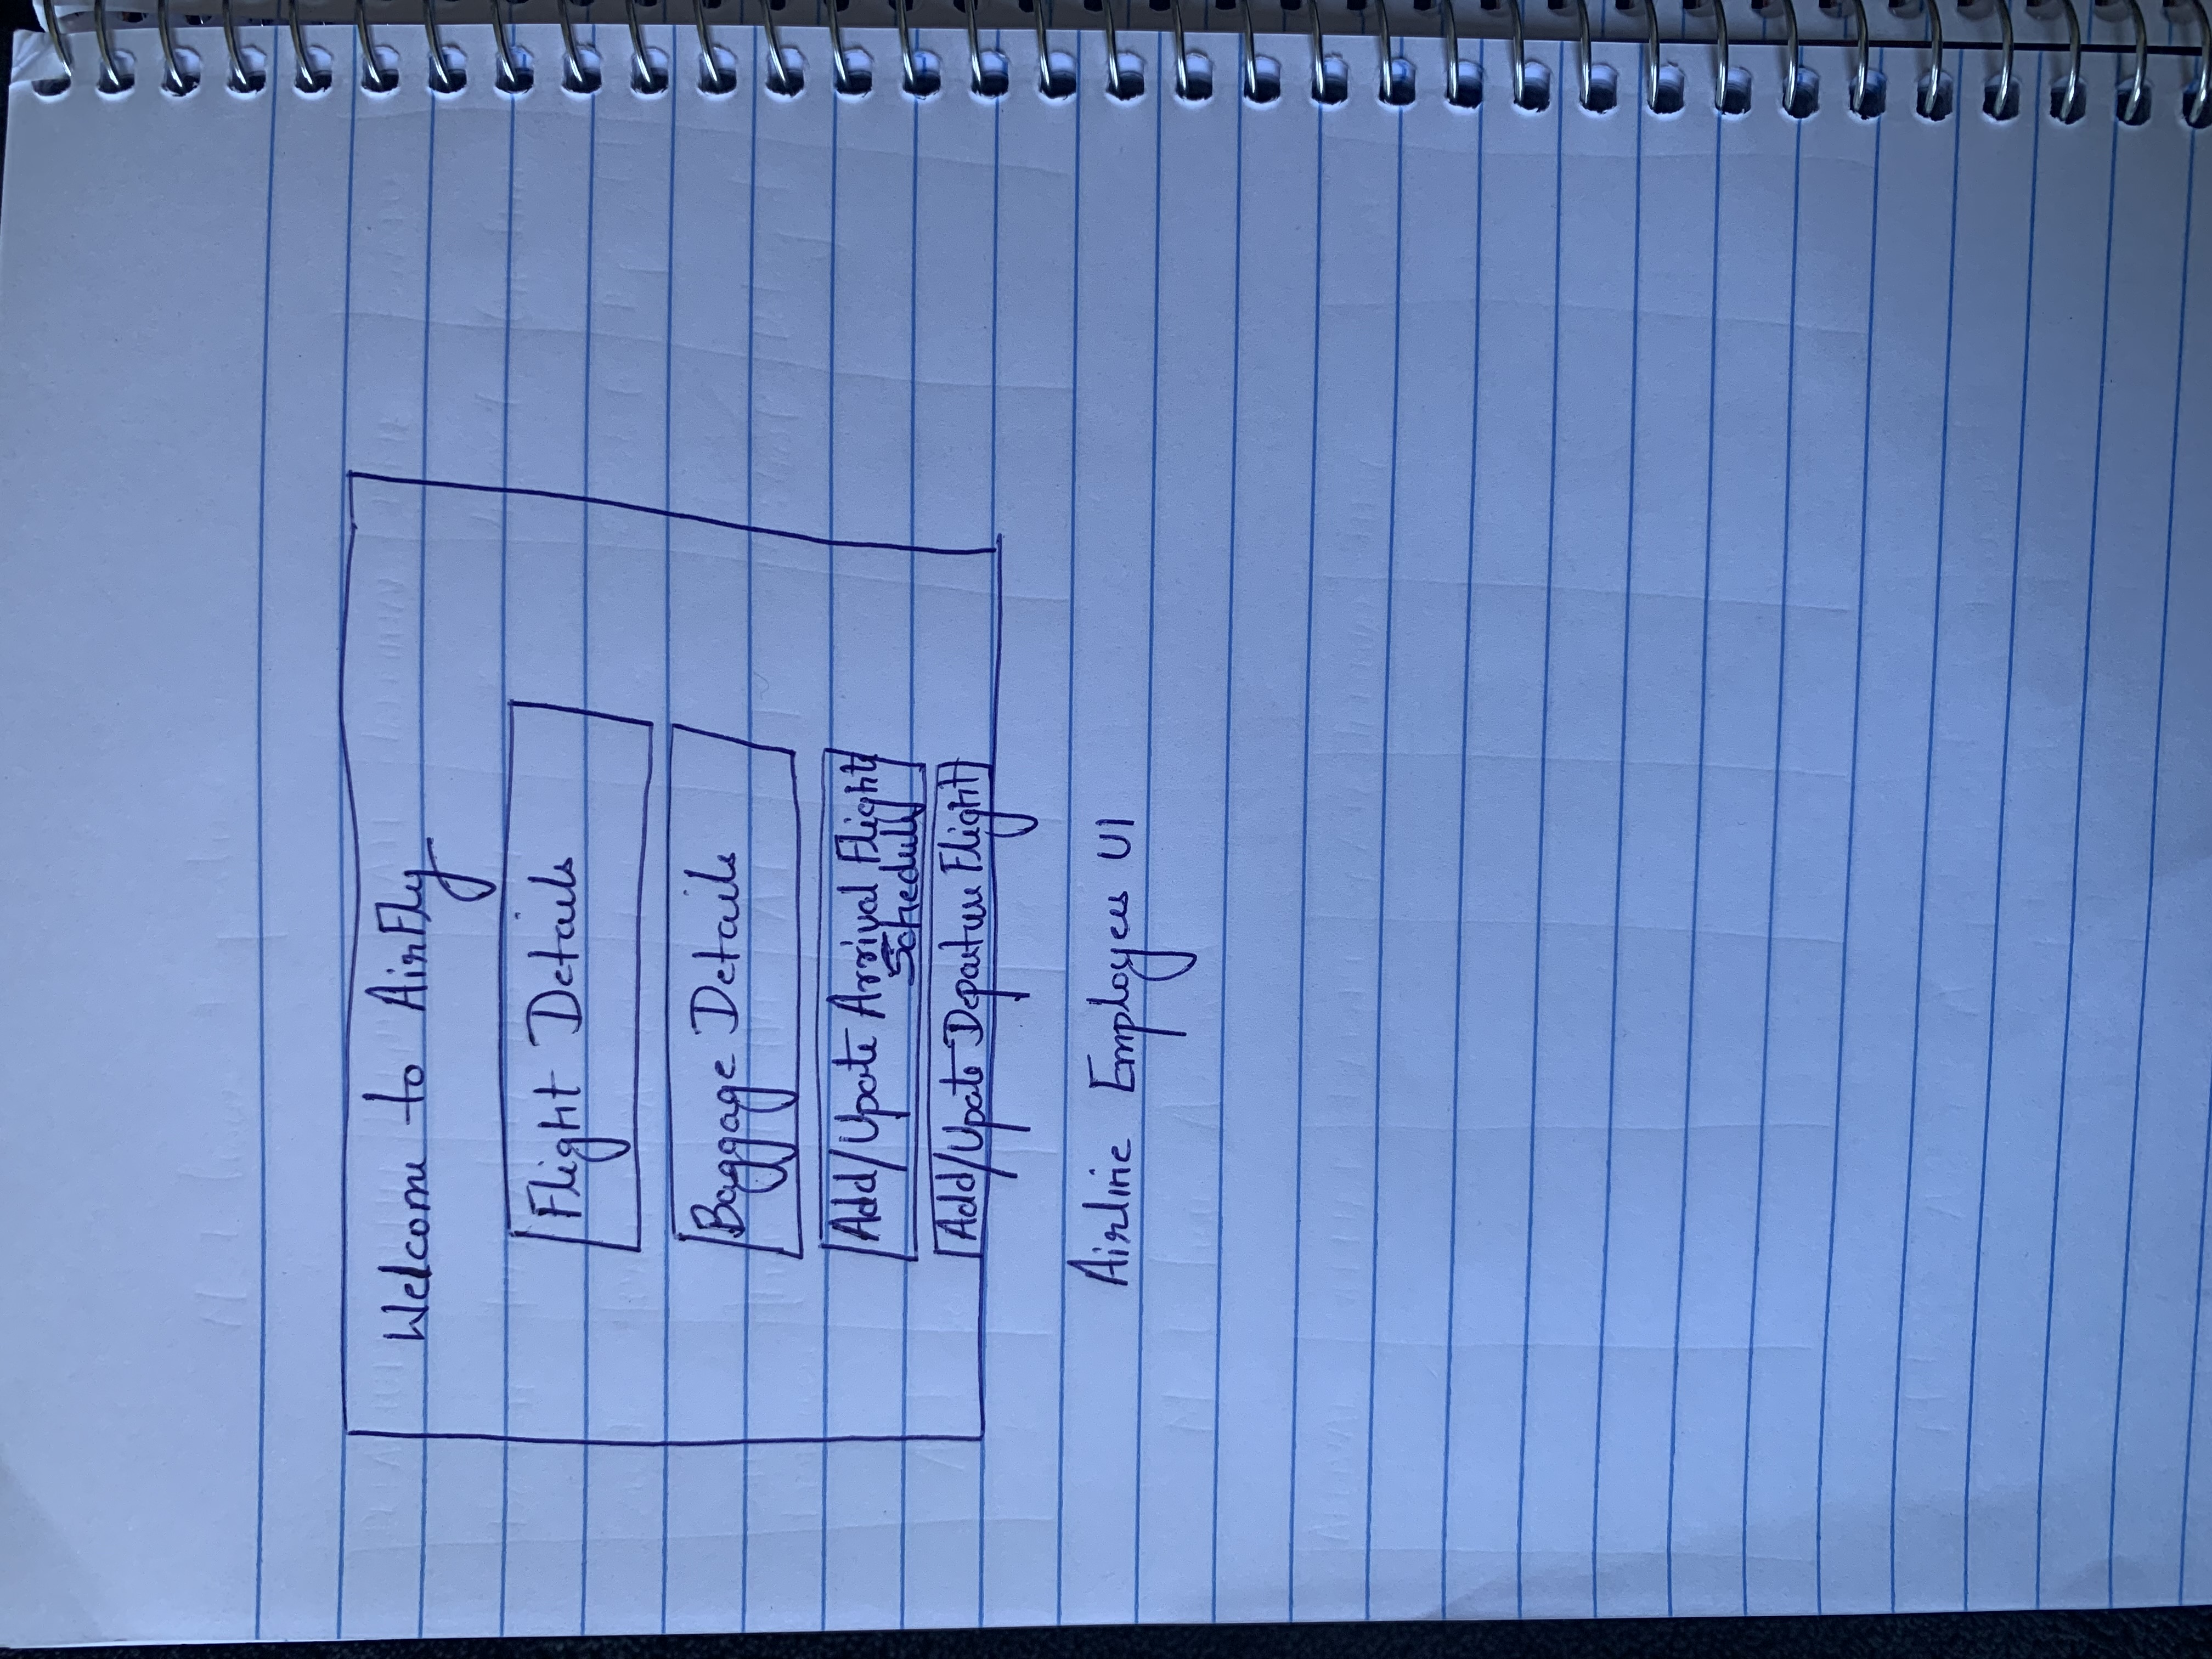 Welcome to AirFly
Flight Details
Baggage Details
Add/Upate Arrival Flight
Schedule
Add/Upate Departure Flight
Airline Employees UI